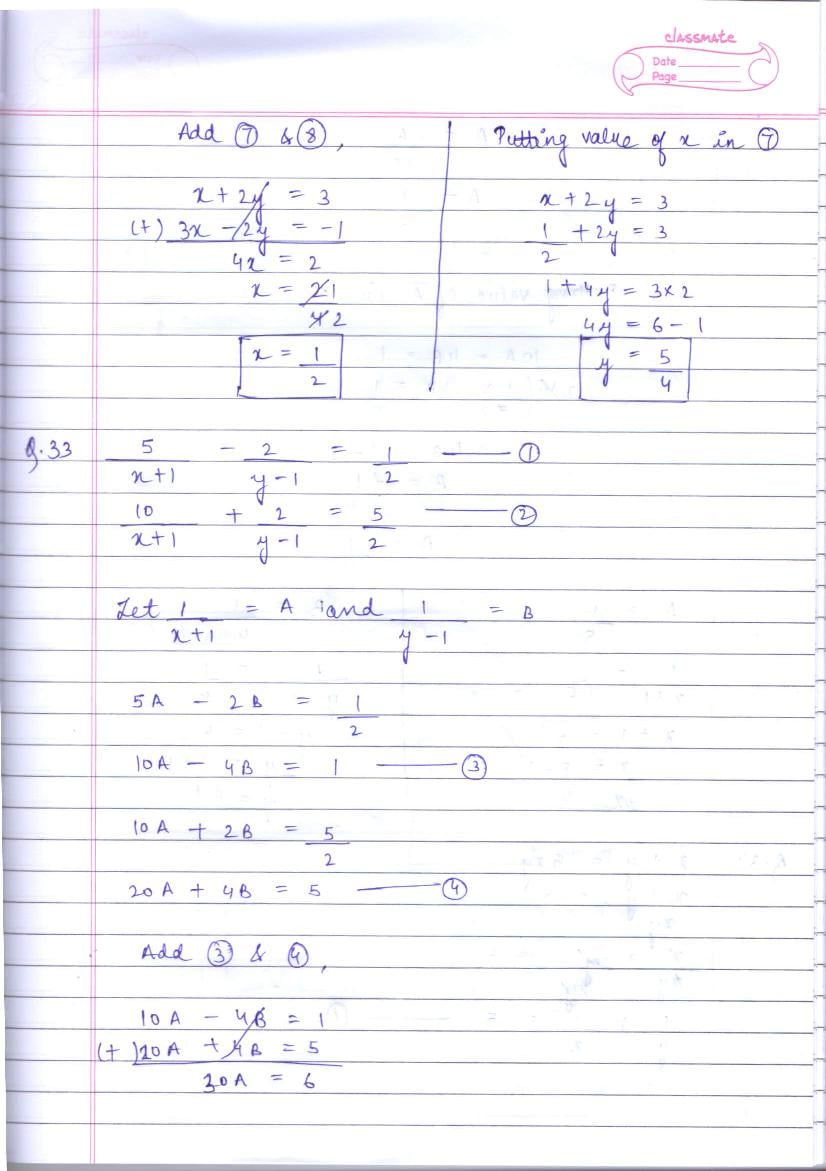 classmate
Date
Page
Add ⑦ & ⑧,
x + 2y = 3
(+) 3x - 2y = -1
4x = 2
x = 2 1
4 2
x = 1
2
Putting value of x in ⑦
x + 2y = 3
1 + 2y = 3
2
1 + 4y = 3×2
4y = 6 - 1
y = 5
4
Q.33 5 - 2 = 1 ①
x+1 y-1 2
10 + 2 = 5 ②
x+1 y-1 2
Let 1 = A and 1 = B
x+1 y-1
5A - 2B = 1
2
10A - 4B = 1 ③
10A + 2B = 5
2
20A + 4B = 5 ④
Add ③ & ④,
10A - 4B = 1
(+) 20A + 4B = 5
30A = 6